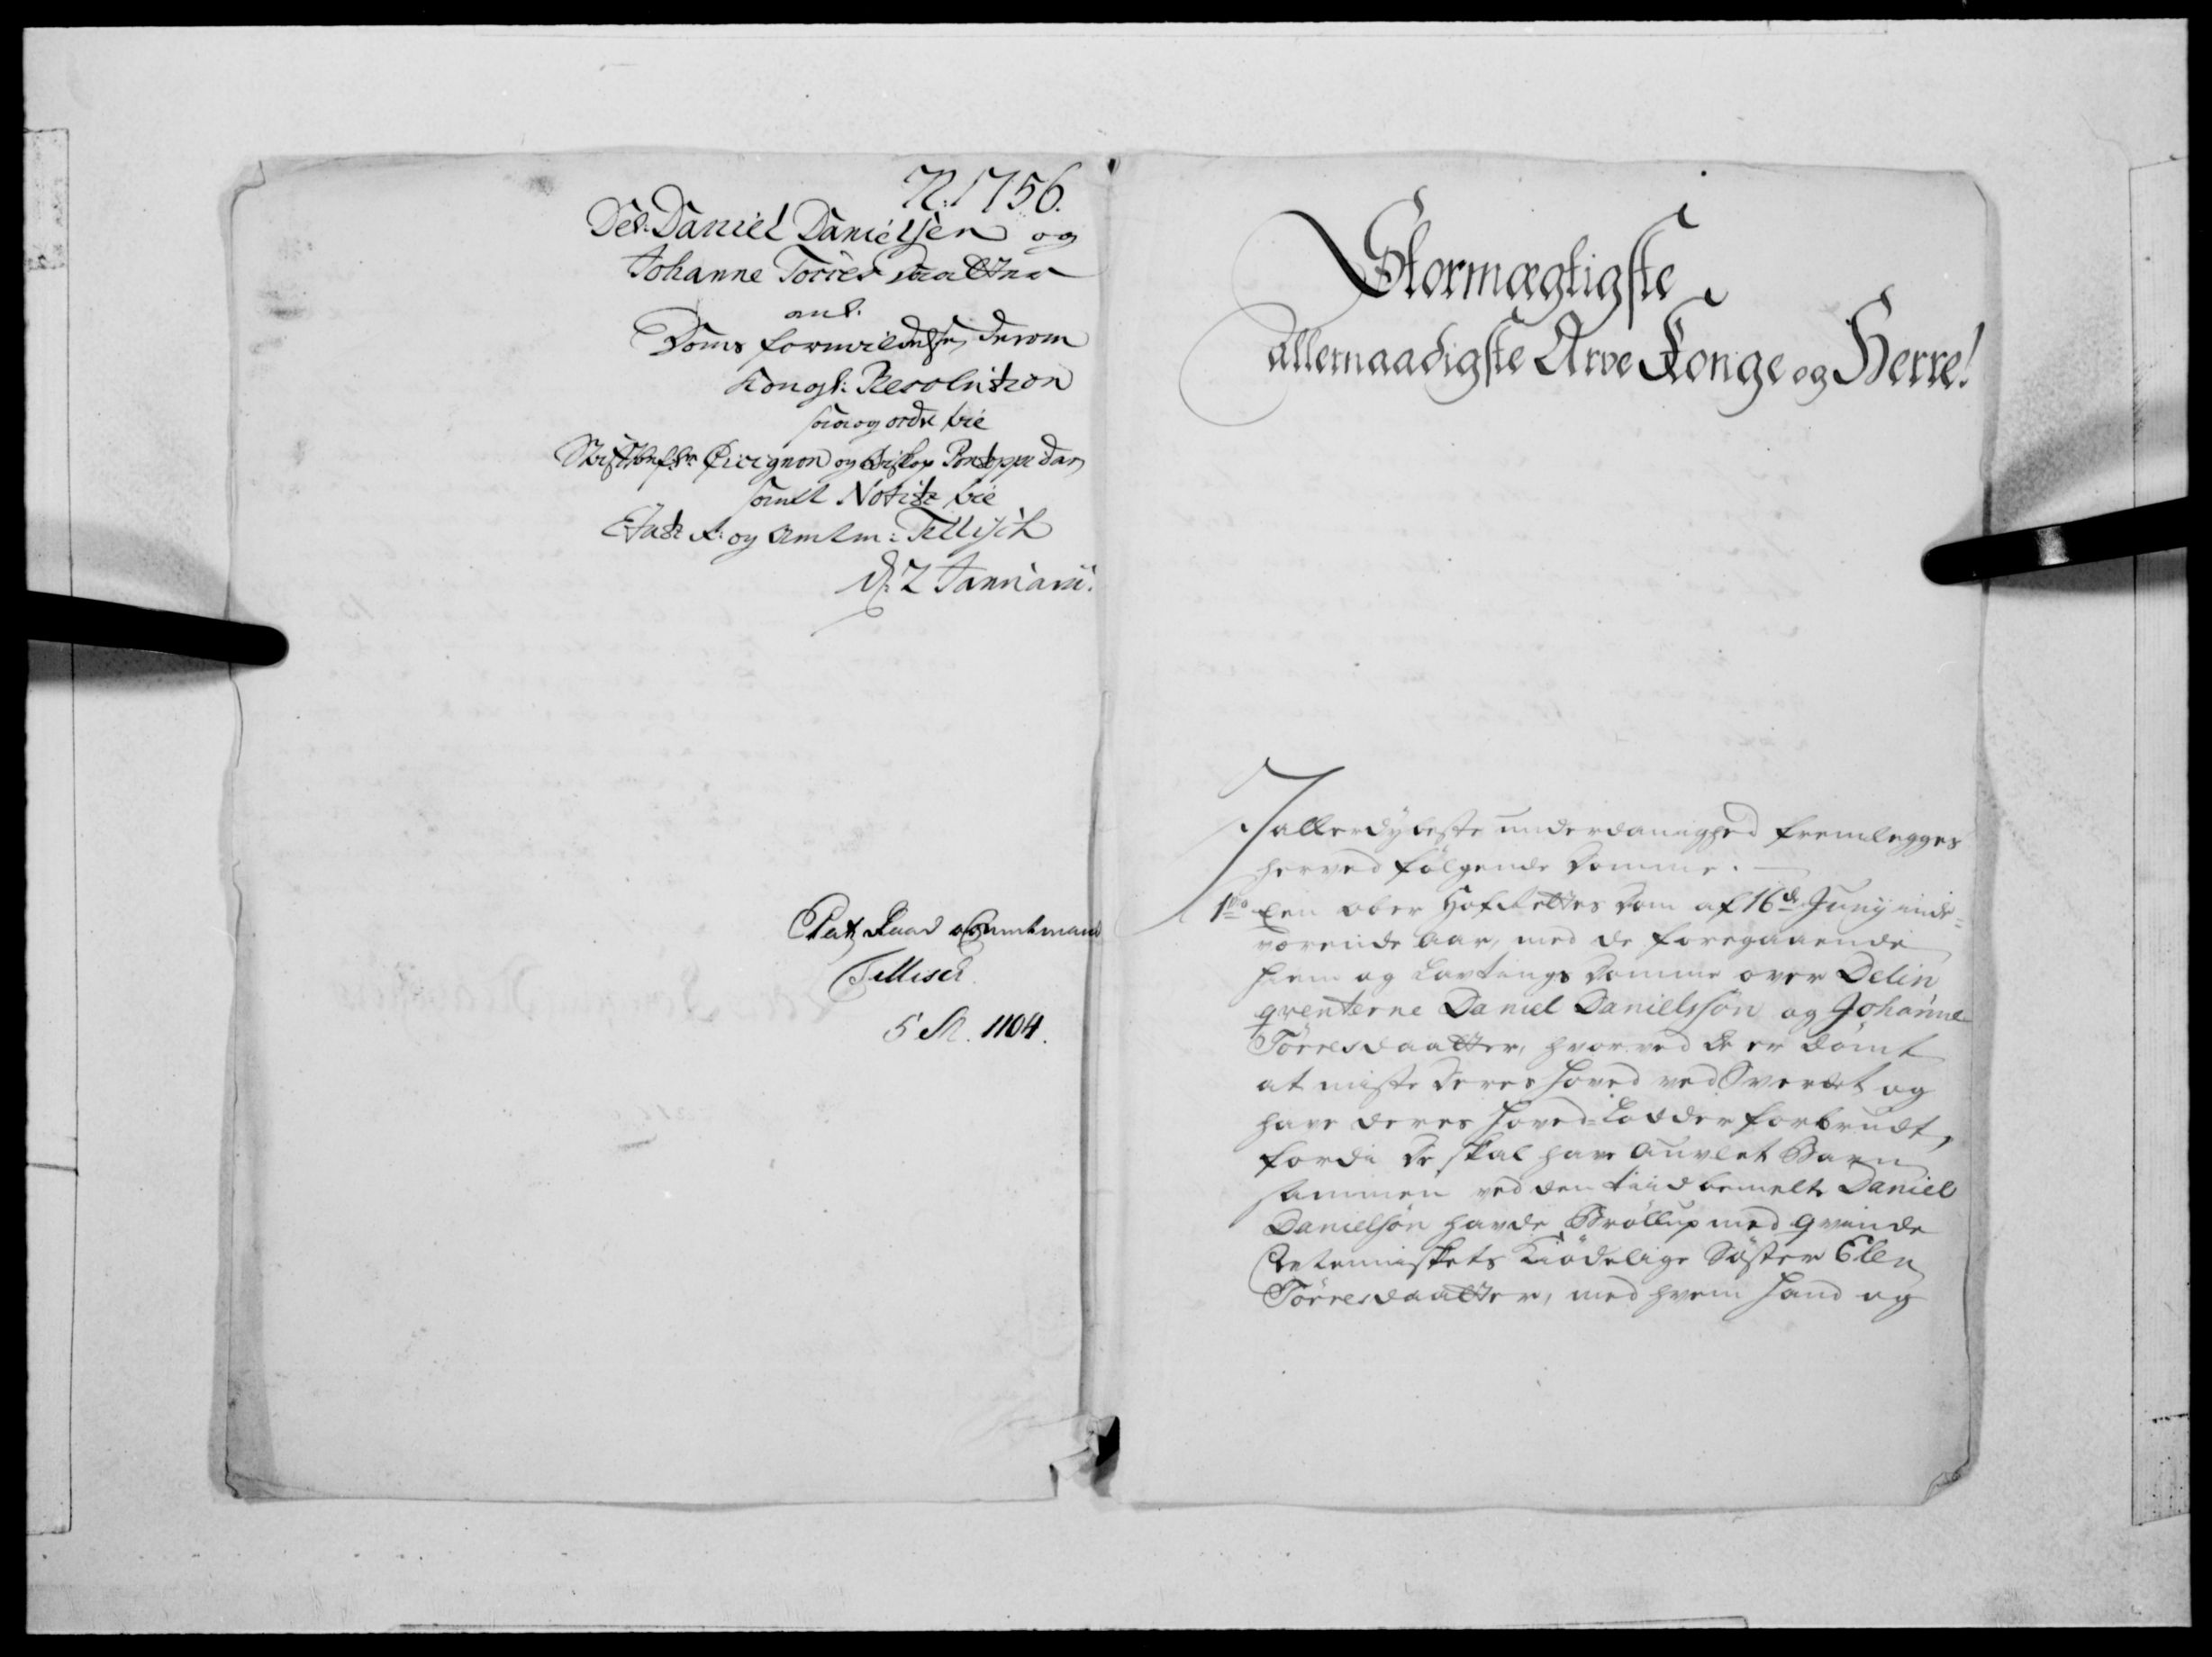 N: 1756.
Del: Daniel Danielsen og
Johanne Torresdaatter
anl.
Doms formildelse, derom
Kongl: Resolution
saa og ordre bie
Stiftbefhr Cicignon og Biskop Pontoppidan
samt Notitz bie
Etatz R: og Amtm: Tillisch
d: 2 Januarii.
Etatz Raad og Amtmand
Tillisch
5 St. 1104.
Stormægtigste
allernaadigste Arve Konge og Herre!
I allerdybeste underdanighed fremlegges
herved følgende Domme.
1mo Een ober Hof Rettes Dom af 16de Junij inde=
værende Aar, med de foregaaende
Hiem og Lavtings Domme over Delin
qventerne Daniel Danielssøn og Johanne
Törresdaatter, hvorved de er dömt
at miste deres Hoved ved Sverdet og
have deres Hoved=Lodder forbrudt,
fordi de skal have auvlet Barn
sammen ved den tiid bemelte Daniel
Danielsøn havde Bröllup med qvinde
Mennisket&#x27;s Kiödelige Söster Elen
Törresdaatter, med hvem Hand og